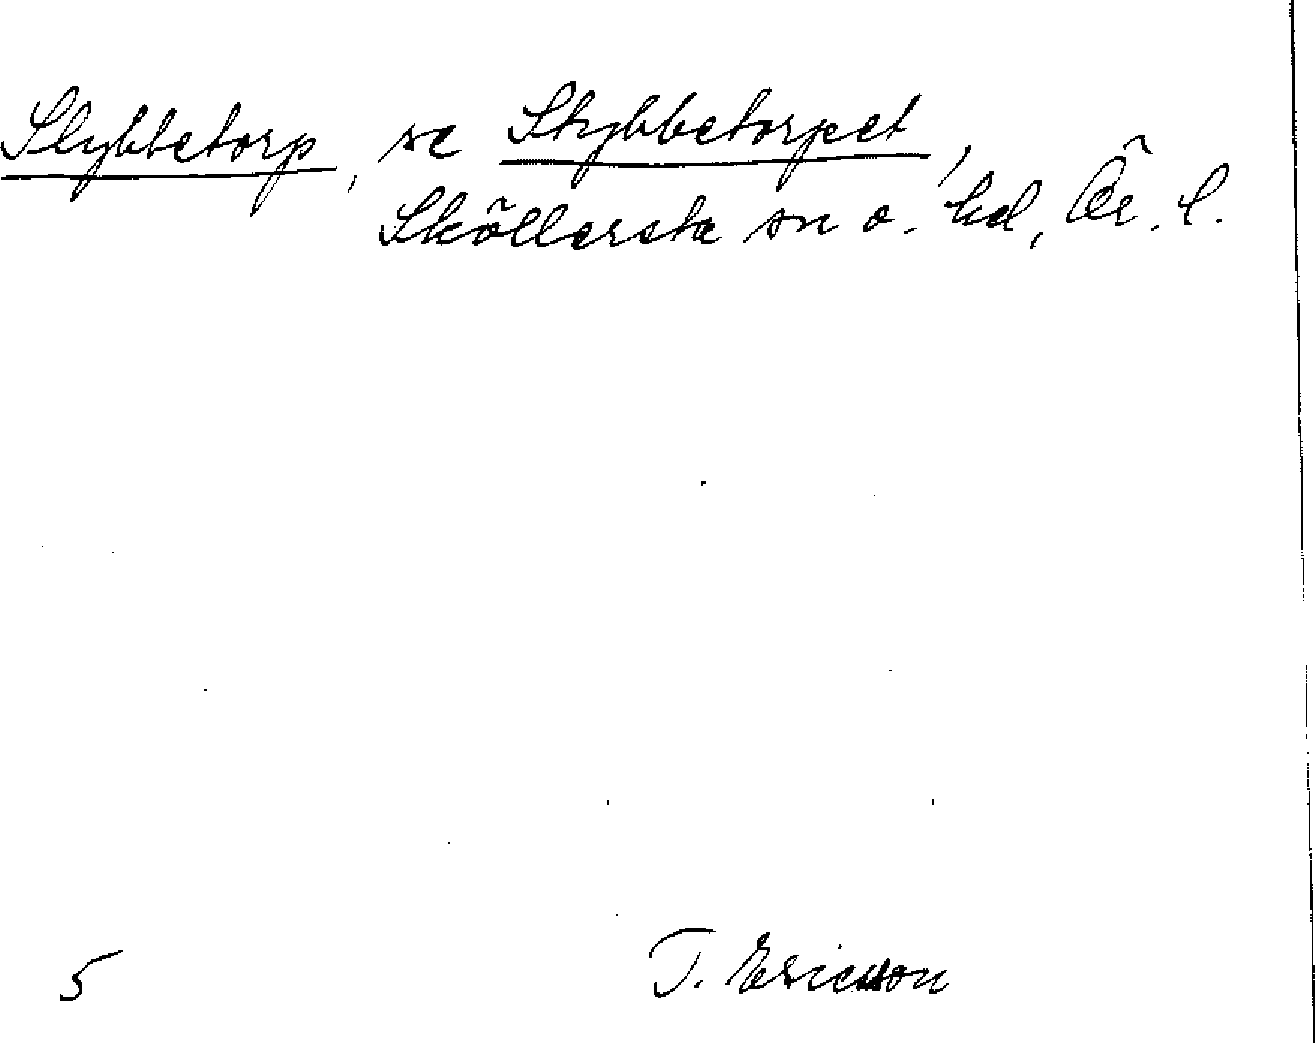 Slybbetorp, se Stybbetorpet,
Sköllersta sn o. hd, Ör. l.
5 T. Ericsson